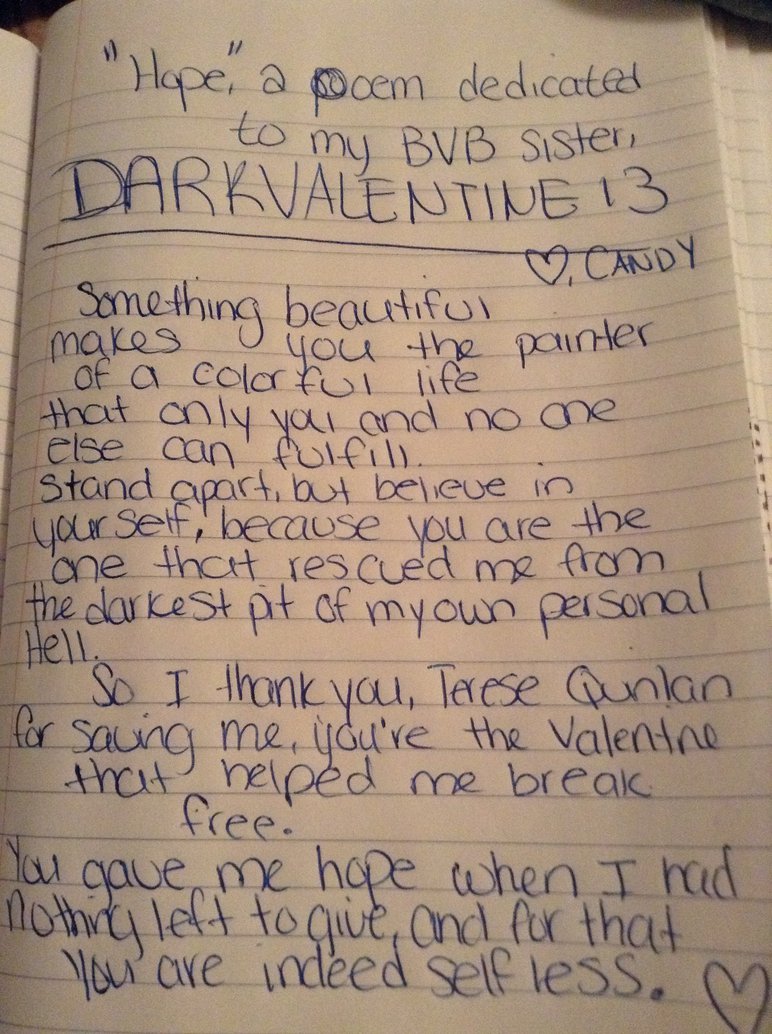 "Hope," a poem dedicated
to my BVB sister,
DARKVALENTINE 13
♡, CANDY
Something beautiful
makes you the painter
of a colorful life
that only you and no one
else can fulfill.
Stand apart, but believe in
yourself, because you are the
one that rescued me from
the darkest pit of my own personal
Hell.
So I thank you, Terese Qunlan
for saving me, you're the Valentine
that helped me break
free.
You gave me hope when I had
nothing left to give, and for that
You are indeed selfless. ♡